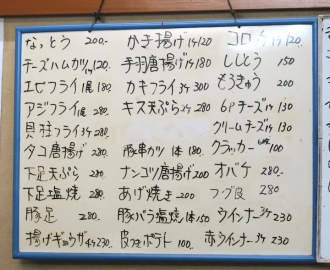 なっとう 200-
チーズハムカツ1ケ120
エビフライ1尾180
アジフライ1尾280
貝柱フライ3ケ280
タコ唐揚げ280.
下足天ぷら280
下足塩焼280.
豚足280.
揚げギョウザ4ケ230
かき揚げ1ケ120
手羽唐揚げ1ケ180
カキフライ3ケ300
キス天ぷら2ケ280
豚串カツ1本180.
ナンコツ唐揚げ280
あげ焼き200
豚バラ塩焼1本150
皮つきポテト100.
コロッケ1ケ120
ししとう150
もろきゅう200
6Pチーズ1ケ130
クリームチーズ1ケ130
クラッカー100
オバケ280
フグ皮280
ウインナー3ケ230
赤ウインナー3ケ230